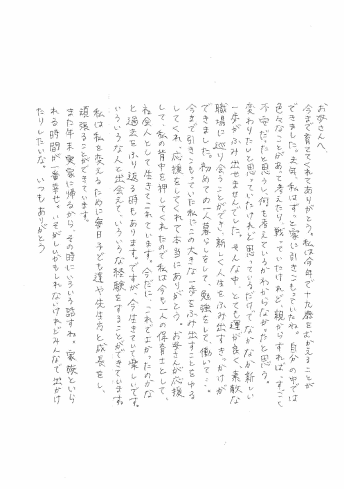 お母さんへ、
今まで育ててくれてありがとう。私は今年で十九歳をむかえることが
できました。去年、私はずっと家に引きこもっていたね。自分の中では
色々なことがあって考えたり、戦っていたけれど、親からすれば、すごく
不安だったと思うし、何を考えているかわからなかったと思う。
変わりたいと思っていたけれど、思っているだけでなかなか新しい
一歩がふみ出せませんでした。そんな中、とても運が良く、素敵な
職場に巡り会うことができ、新しく人生をふみ出すきっかけが
できました。初めての一人暮らしをして、勉強をして、働いて…。
今まで引きこもっていた私にこの大きな一歩をふみ出すことをゆる
してくれ、応援をしてくれて本当にありがとう。お母さんが応援
して、私の背中を押してくれたので私は今も一人の保育士として、
社会人として生きてこれています。今だに、これでよかったのかな
と過去をふり返る時もあります。ですが、今、生きていて楽しいです。
いろいろな人と出会えて、いろいろな経験をすることができています。
私は私を変えるために毎日子ども達や先生方と成長をし、
頑張ることができています。
また年末、実家に帰るから、その時にいろいろ話すね。家族といら
れる時間が一番幸せ。いそがしいかもしれないけれどみんなで出かけ
たりしたいな。いつもありがとう